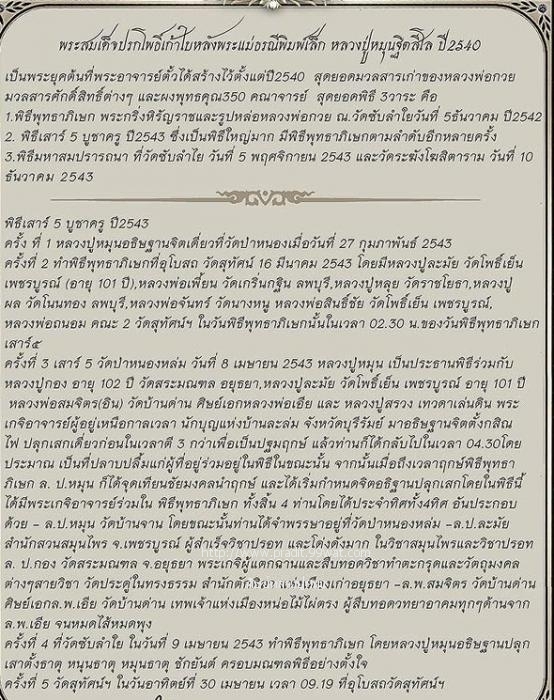 พระสมเด็จปรกโพธิ์เก้าใบหลังพระแม่ธรณีพิมพ์เล็ก หลวงปู่หมุนฐิตสีโล ปี2540
เป็นพระยุคต้นที่พระอาจารย์ตั้วได้สร้างไว้ตั้งแต่ปี2540 สุดยอดมวลสารเก่าของหลวงพ่อกวย
มวลสารศักดิ์สิทธิ์ต่างๆ และผงพุทธคุณ350 คณาจารย์ สุดยอดพิธี 3วาระ คือ
1.พิธีพุทธาภิเษก พระกริ่งหิรัญราชและรูปหล่อหลวงพ่อกวย ณ.วัดซับลำใยวันที่ 5ธันวาคม ปี2542
2. พิธีเสาร์ 5 บูชาครู ปี2543 ซึ่งเป็นพิธีใหญ่มาก มีพิธีพุทธาภิเษกตามลำดับอีกหลายครั้ง
3.พิธีมหาสมปรารถนา ที่วัดซับลำไย วันที่ 5 พฤศจิกายน 2543 และวัดระฆังโฆสิตาราม วันที่ 10
ธันวาคม 2543
พิธีเสาร์ 5 บูชาครู ปี2543
ครั้ง ที่ 1 หลวงปู่หมุนอธิษฐานจิตเดี่ยวที่วัดป่าหนองเมื่อวันที่ 27 กุมภาพันธ์ 2543
ครั้งที่ 2 ทำพิธีพุทธาภิเษกที่อุโบสถ วัดสุทัศน์ 16 มีนาคม 2543 โดยมีหลวงปู่ละมัย วัดโพธิ์เย็น
เพชรบูรณ์ (อายุ 101 ปี),หลวงพ่อเพี้ยน วัดเกริ่นกฐิน ลพบุรี,หลวงปู่หลุย วัดราชโยธา,หลวงปู่
ผล วัดโนนทอง ลพบุรี,หลวงพ่อจันทร์ วัดนางหนู หลวงพ่อสิทธิ์ชัย วัดโพธิ์เย็น เพชรบูรณ์,
หลวงพ่อถนอม คณะ 2 วัดสุทัศน์ฯ ในวันพิธีพุทธาภิเษกนั้นในเวลา 02.30 น.ของวันพิธีพุทธาภิเษก
เสาร์๕
ครั้งที่ 3 เสาร์ 5 วัดป่าหนองหล่ม วันที่ 8 เมษายน 2543 หลวงปู่หมุน เป็นประธานพิธีร่วมกับ
หลวงปู่กอง อายุ 102 ปี วัดสระมณฑล อยุธยา,หลวงปู่ละมัย วัดโพธิ์เย็น เพชรบูรณ์ อายุ 101 ปี
หลวงพ่อสมจิตร(อิน) วัดบ้านด่าน ศิษย์เอกหลวงพ่อเอีย และ หลวงปู่สรวง เทวดาเล่นดิน พระ
เกจิอาจารย์ผู้อยู่เหนือกาลเวลา นักบุญแห่งบ้านละลม จังหวัดบุรีรัมย์ มาอธิษฐานจิตตั้งกสิณ
ไฟ ปลุกเสกเดี่ยวก่อนในเวลาตี 3 กว่าเพื่อเป็นปฐมฤกษ์ แล้วท่านก็ได้กลับไปในเวลา 04.30โดย
ประมาณ เป็นที่ปลาบปลื้มแก่ผู้ที่อยู่ร่วมอยู่ในพิธีในขณะนั้น จากนั้นเมื่อถึงเวลาฤกษ์พิธีพุทธา
ภิเษก ล. ป.หมุน ก็ได้จุดเทียนชัยมงคลนำฤกษ์ และได้เริ่มกำหนดจิตอธิฐานปลุกเสกโดยในพิธีนี้
ได้มีพระเกจิอาจารย์ร่วมใน พิธีพุทธาภิเษก ทั้งสิ้น 4 ท่านโดยได้ประจำทิศทั้ง4ทิศ อันประกอบ
ด้วย - ล.ป.หมุน วัดบ้านจาน โดยขณะนั้นท่านได้จำพรรษาอยู่ที่วัดป่าหนองหล่ม -ล.ป.ละมัย
สำนักสวนสมุนไพร จ.เพชรบูรณ์ ผู้สำเร็จวิชาปรอท และโด่งดังมาก ในวิชาสมุนไพรและวิชาปรอท
ล. ป.กอง วัดสระมณฑล จ.อยุธยา พระเกจิผู้แตกฉานและสืบทอดวิชาทำตะกรุดและวัตถุมงคล
ต่างๆสายวิชา วัดประดู่ในทรงธรรม สำนักตักศิลาแห่งเมืองเก่าอยุธยา -ล.พ.สมจิตร วัดบ้านด่าน
ศิษย์เอกล.พ.เอีย วัดบ้านด่าน เทพเจ้าแห่งเมืองหน่อไม้ไผ่ตรง ผู้สืบทอดวิทยาอาคมทุกๆด้านจาก
ล.พ.เอีย จนหมดไส้หมดพุง
ครั้งที่ 4 ที่วัดซับลำใย ในวันที่ 9 เมษายน 2543 ทำพิธีพุทธาภิเษก โดยหลวงปู่หมุนอธิษฐานปลุก
เสาตั้งธาตุ หนุนธาตุ หมุนธาตุ ชักยันต์ ครอบมณฑลพิธีอย่างตั้งใจ
ครั้งที่ 5 วัดสุทัศน์ฯ ในวันอาทิตย์ที่ 30 เมษายน เวลา 09.19 ที่อุโบสถวัดสุทัศน์ฯ